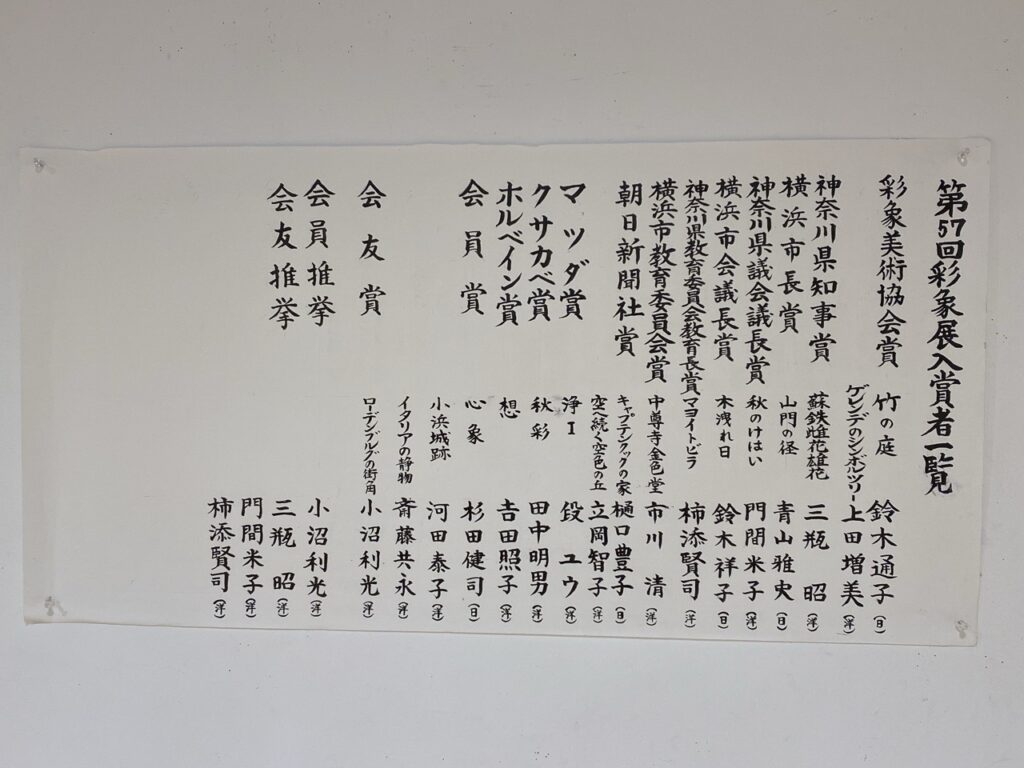 第57回彩象展入賞者一覧
彩象美術協会賞 竹の庭 鈴木通子(日)
ゲレンデのシンボルツリー 上田増美(洋)
神奈川県知事賞 蘇鉄雌花雄花 三瓶 昭(洋)
横浜市長賞 山門の径 青山雅史(日)
神奈川県議会議長賞 秋のけはい 門間米子(洋)
横浜市会議長賞 木洩れ日 鈴木祥子(日)
神奈川県教育委員会教育長賞 マヨイトビラ 柿添賢司(洋)
横浜市教育委員会賞 中尊寺金色堂 市川 清(洋)
朝日新聞社賞 キャプテンクックの家 樋口豊子(日)
空へ続く空色の丘 立岡智子(洋)
マツダ賞 浄I ユウ(洋)
クサカベ賞 秋彩 田中明男(洋)
ホルベイン賞 想 吉田照子(洋)
会員賞 心象 杉田健司(日)
小浜城跡 河田泰子(洋)
イタリアの静物 斎藤共永(洋)
会友賞 ローデンブルグの街角 小沼利光(洋)
会員推挙 小沼利光(洋)
会友推挙 三瓶 昭(洋)
門間米子(洋)
柿添賢司(洋)